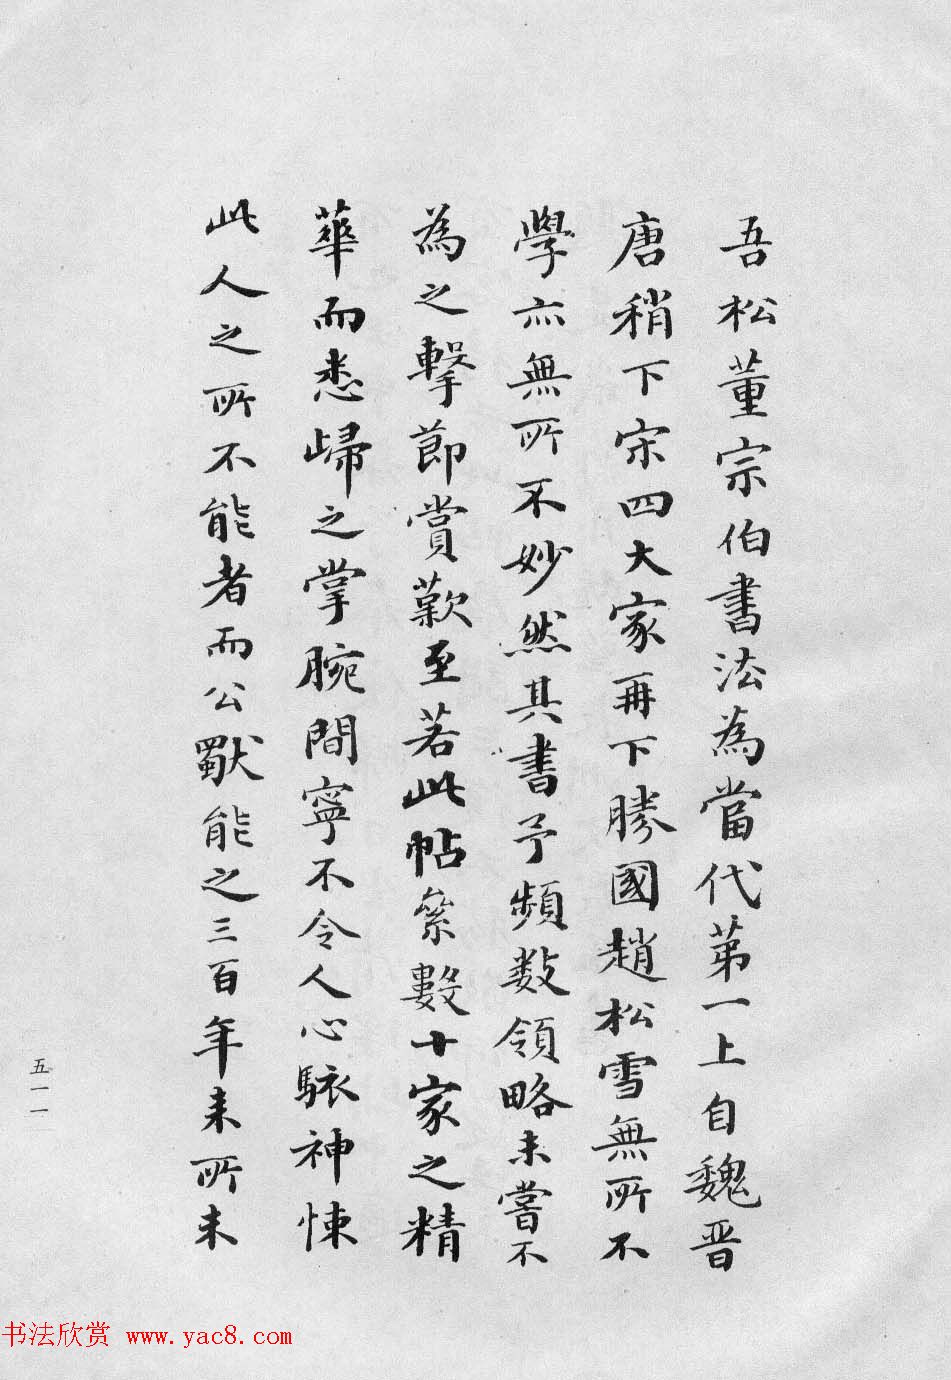 吾松董宗伯書法為當代第一上自魏晋
唐稍下宋四大家再下勝國趙松雪無所不
學亦無所不妙然其書予頻数領略未嘗不
為之擊節賞歎至若此帖叅數十家之精
華而悉歸之掌腕間寧不令人心駭神悚
此人之所不能者而公獸能之三百年来所未
五一一
书法欣赏 www.yac8.com